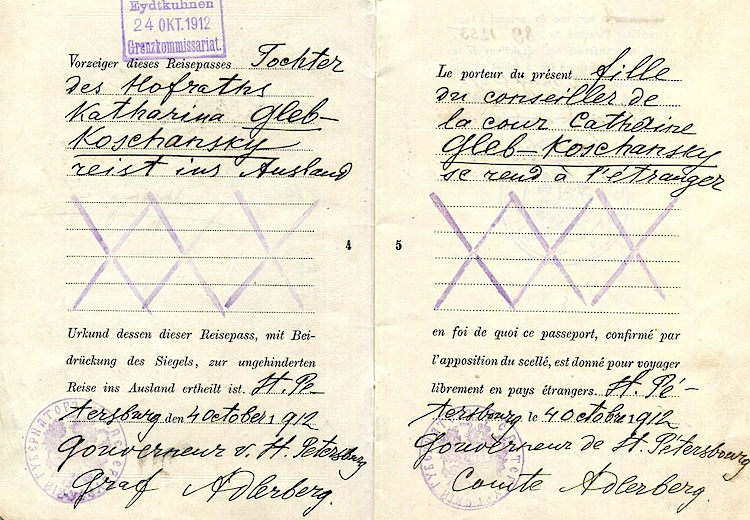 Eydtkuhnen
24 OKT. 1912
Grenzkommissariat.
Vorzeiger dieses Reisepasses Tochter
des Hofraths
Katharina Gleb-
Koschansky
reist ins Ausland
4
Urkund dessen dieser Reisepass, mit Bei-
drückung des Siegels, zur ungehinderten
Reise ins Ausland ertheilt ist. St. Pe-
tersburg den 4 October 1912
Gouverneur v. St. Petersburg
Graf Adlerberg.
Le porteur du présent fille
du conseiller de
la cour Cathérine
Gleb-Koschansky
se rend à l'étranger
5
en foi de quoi ce passeport, confirmé par
l'apposition du scellé, est donné pour voyager
librement en pays étrangers. St. Pé-
tersbourg le 4 October 1912
Gouverneur de St. Pétersbourg
Comte Adlerberg.